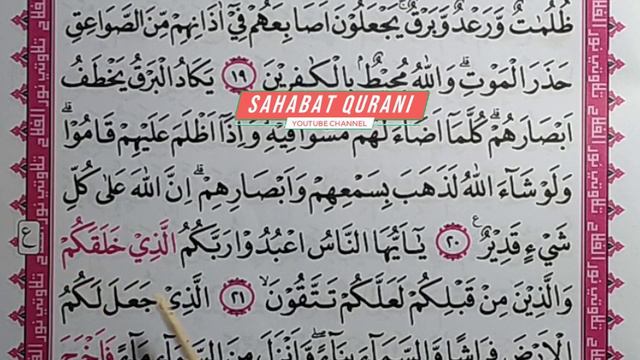 ظُلُمٰتٌ وَّرَعْدٌ وَّبَرْقٌۚ يَجْعَلُوْنَ اَصَابِعَهُمْ فِيْٓ اٰذَانِهِمْ مِّنَ الصَّوَاعِقِ
حَذَرَ الْمَوْتِۗ وَاللّٰهُ مُحِيْطٌۢ بِالْكٰفِرِيْنَ ١٩ يَكَادُ الْبَرْقُ يَخْطَفُ
SAHABAT QURANI
YOUTUBE CHANNEL
اَبْصَارَهُمْۗ كُلَّمَآ اَضَاۤءَ لَهُمْ مَّشَوْا فِيْهِۙ وَاِذَآ اَظْلَمَ عَلَيْهِمْ قَامُوْاۗ
وَلَوْ شَاۤءَ اللّٰهُ لَذَهَبَ بِسَمْعِهِمْ وَاَبْصَارِهِمْۗ اِنَّ اللّٰهَ عَلٰى كُلِّ
شَيْءٍ قَدِيْرٌ ٢٠ يٰٓاَيُّهَا النَّاسُ اعْبُدُوْا رَبَّكُمُ الَّذِيْ خَلَقَكُمْ
ع
وَالَّذِيْنَ مِنْ قَبْلِكُمْ لَعَلَّكُمْ تَتَّقُوْنَۙ ٢١ الَّذِيْ جَعَلَ لَكُمُ
الْاَرْضَ فِرَاشًا وَّالسَّمَاۤءَ بِنَاۤءًۖ وَّاَنْزَلَ مِنَ السَّمَاۤءِ مَاۤءً فَاَخْرَجَ